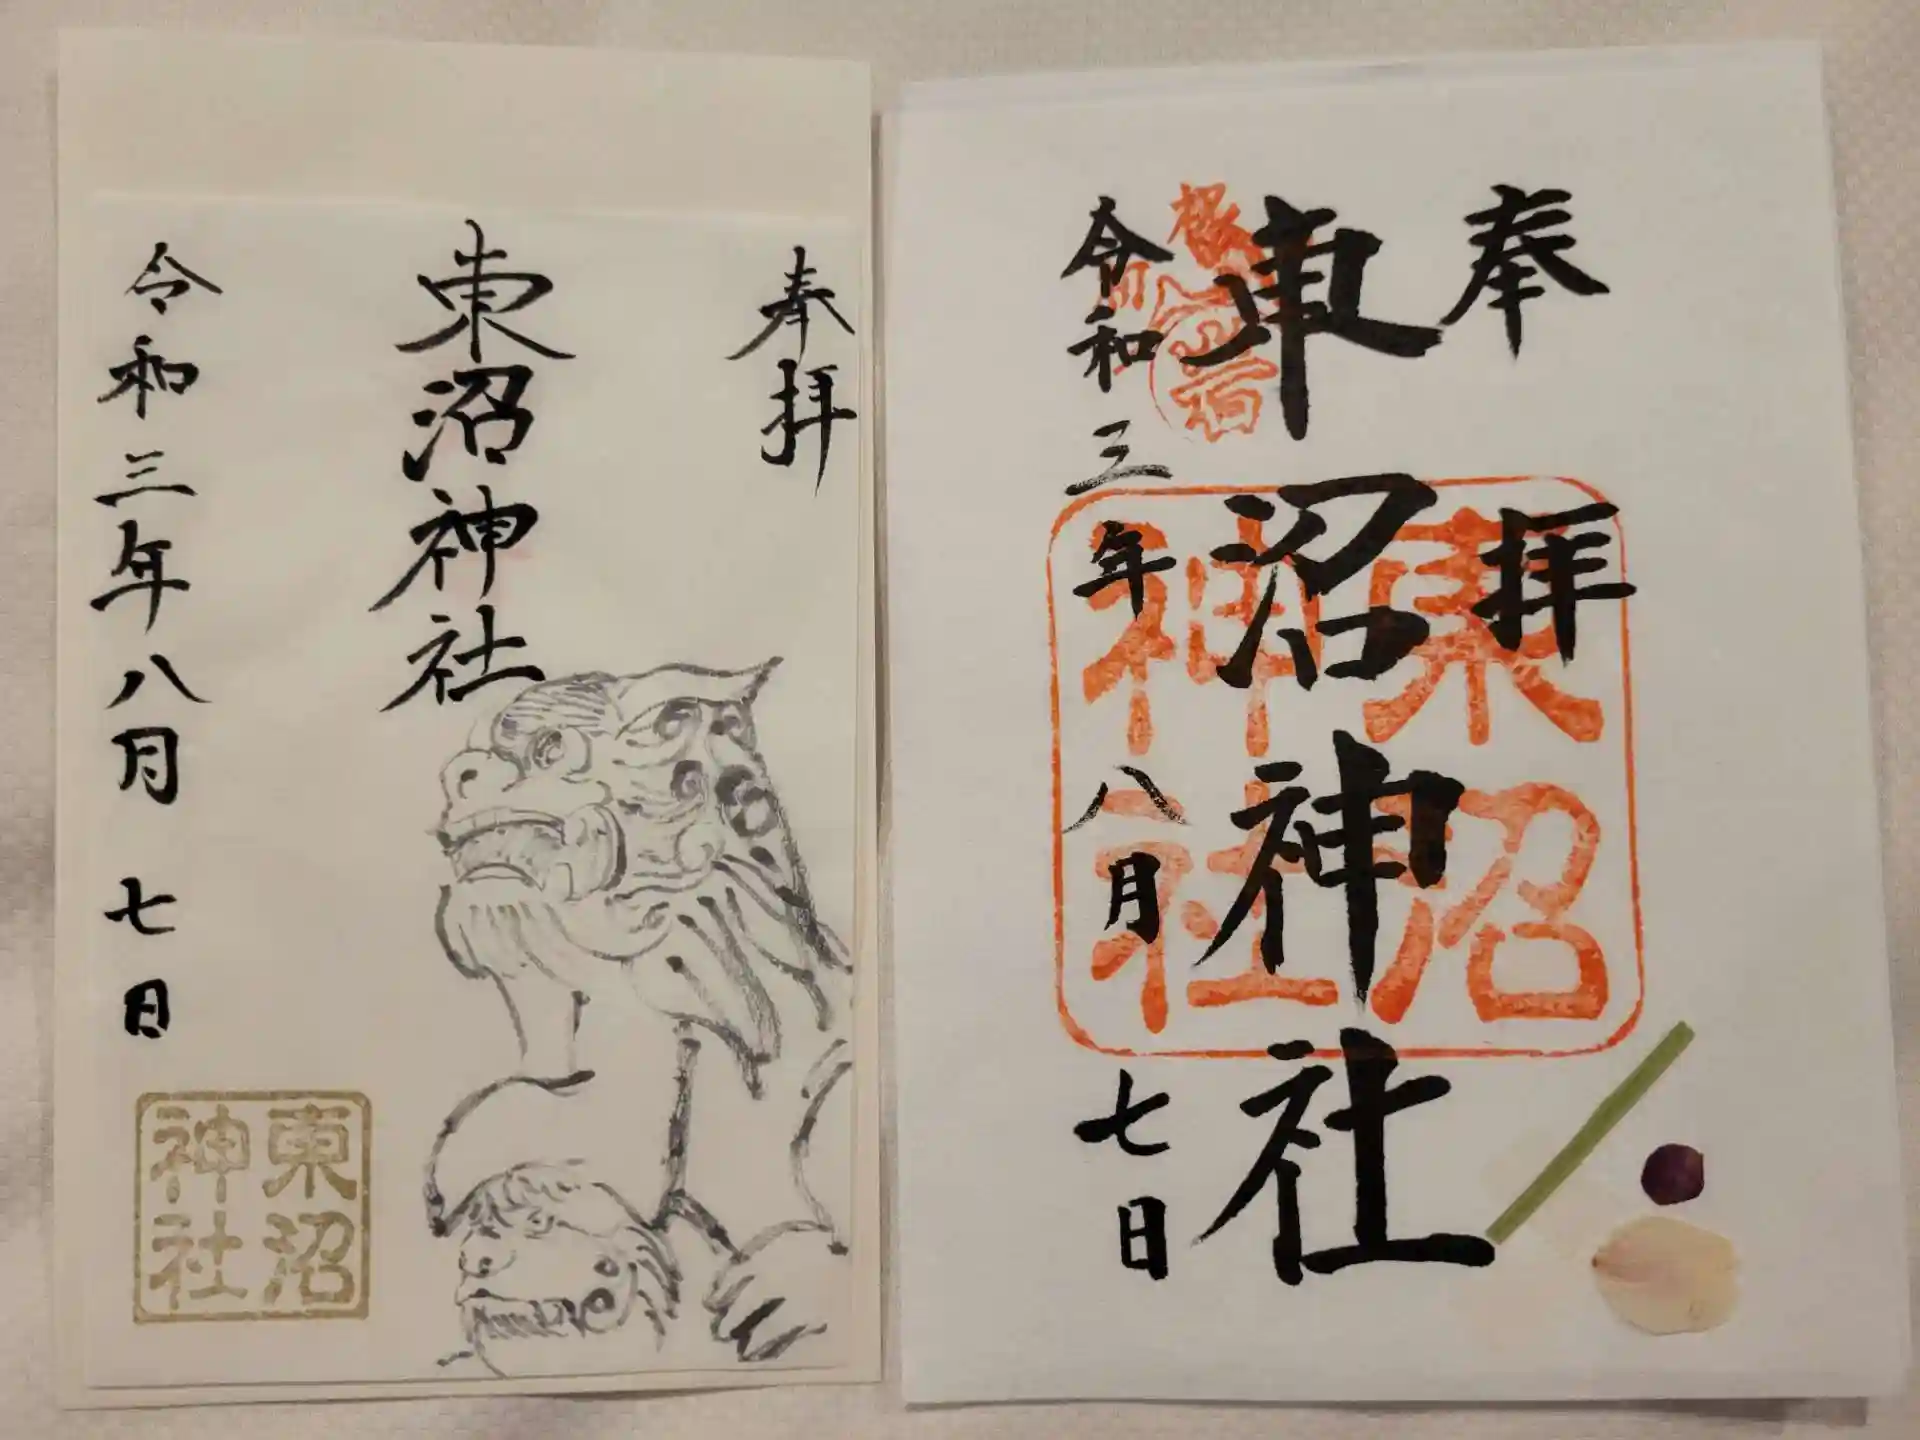 奉拝
東沼神社
令和三年八月七日
東沼
神社
奉拝
東沼神社
令和三年八月七日
東沼
神社